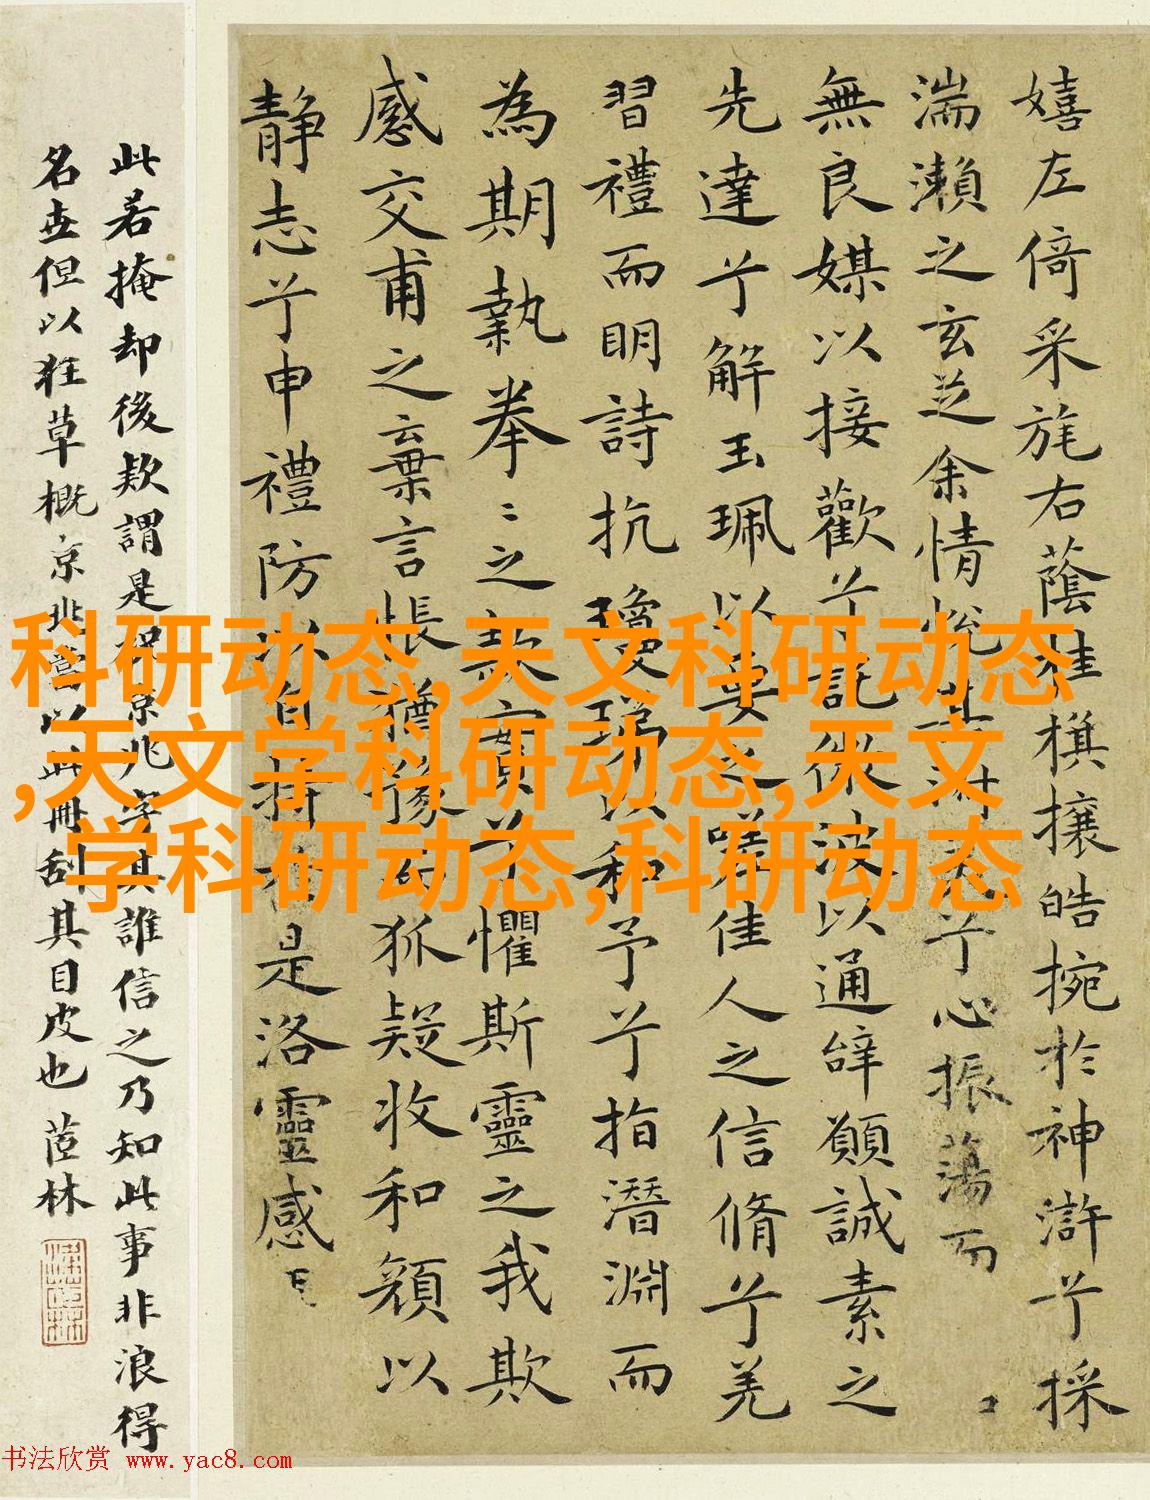 嬉左倚采旄右蔭桂旗攘皓捥於神滸兮採
湍瀨之玄芝余情悅其淑美兮心振蕩而
無良媒以接歡兮託微波以通辭願誠素之
先達兮解玉珮以要之嗟佳人之信脩兮羌
習禮而明詩抗瓊珶以和予兮指潛淵而
為期執拳〻之款實兮懼斯靈之我欺
感交甫之棄言悵猶豫而狐疑收和顏以
靜志兮申禮防以自持於是洛靈感
此若掩却後款謂是祝京兆字其誰信之乃知此事非浪得
名世但以狂草概京兆當以此冊刮其目皮也 茝林
科研动态,天文科研动态
,天文学科研动态,天文
学科研动态,科研动态
书法欣赏 www.yac8.com